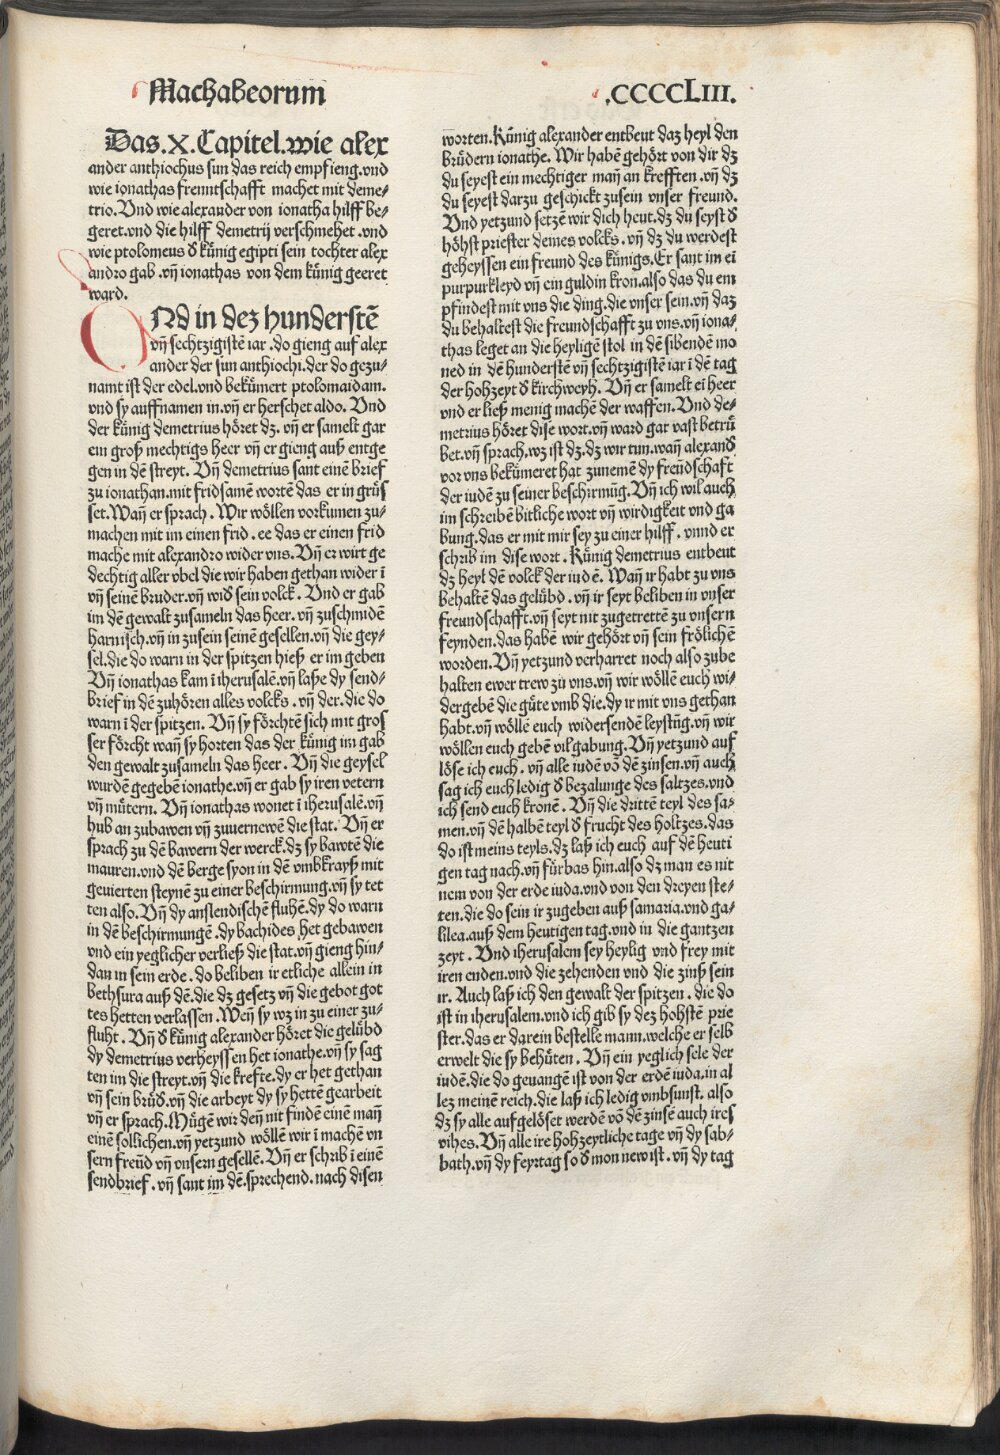 Machabeorum
.CCCCLIII.
Das.X.Capitel.wie alex
ander anthiochus sun das reich empfieng.vnd
wie ionathas frenntschafft machet mit deme-
trio.Vnd wie alexander von ionatha hilff be-
geret.vnd die hilff demetrij verschmehet.vnd
wie ptolomeus d̕ kűnig egipti sein tochter alex
andro gab.vn̄ ionathas von dem kűnig geeret
ward.
VNd in dez hunderstē
vn̄ sechtzigistē iar.do gieng auf alex
ander der sun anthiochi.der do gezu-
namt ist der edel.vnd bekűmert ptolomaidam.
vnd sy auffnamen in.vn̄ er herschet aldo. Vnd
der kűnig demetrius hőret dz. vn̄ er samelt gar
ein groß mechtigs heer vn̄ er gieng auß entge
gen in dē streyt. Vn̄ demetrius sant einē brief
zu ionathan.mit fridsamē wortē das er in grűs
set.Wan̄ er sprach. Wir wőllen vorkumen zu-
machen mit im einen frid.ee das er einen frid
mache mit alexandro wider vns. Vn̄ er wirt ge
dechtig aller vbel die wir haben gethan wider ī
vn̄ seinē bruder.vn̄ wid̕ sein volck. Vnd er gab
im dē gewalt zusameln das heer. vn̄ zuschmidē
harnisch.vn̄ in zusein seinē gesellen.vn̄ die gey-
sel.die do warn in der spitzen hieß er im geben
Vn̄ ionathas kam ī iherusalē.vn̄ laße dy send-
brief in dē zuhőren alles volcks.vn̄ der.die do
warn ī der spitzen. Vn̄ sy főrchtē sich mit gros
ser főrcht wan̄ sy horten das der kűnig im gab
den gewalt zusameln das heer. Vn̄ die geysel
wurdē gegebē ionathe.vn̄ er gab sy iren vetern
vn̄ műtern. Vn̄ ionathas wonet ī iherusalē.vn̄
hub an zubawen vn̄ zuuernewē die stat. Vn̄ er
sprach zu dē bawern der werck.dz sy bawtē die
mauren.vnd dē berge syon in dē vmbkrayß mit
geuierten steynē zu einer beschirmung.vn̄ sy tet
ten also.Vn̄ dy auslendischē fluhē.dy do warn
in dē beschirmungē.dy bachides het gebawen
vnd ein yeglicher verließ die stat.vn̄ gieng hin-
dan in sein erde.do beliben ir etliche allein in
bethsura auß dē.die dz gesetz vn̄ die gebot got
tes hetten verlassen.Wan̄ sy wz in zu einer zu-
fluht. Vn̄ d̕ kűnig alexander hőret die gelűbd
dy demetrius verheyssen het ionathe.vn̄ sy sag
ten im die streyt.vn̄ die krefte.dy er het gethan
vn̄ sein brűd̕.vn̄ die arbeyt dy sy hettē gearbeit
vn̄ er sprach.Műgē wir den̄ nit findē einē man̄
einē sollichen.vn̄ yetzund wőllē wir ī machē vn
sern freűd vn̄ vnsern gesellē. Vn̄ er schrib ī einē
sendbrief. vn̄ sant im dē.sprechend.nach disen
worten.Kűnig alexander entbeut daz heyl den
brűdern ionathe. Wir habē gehőrt von dir dz
du seyest ein mechtiger man̄ an krefften.vn̄ dz
du seyest darzu geschickt zusein vnser freund.
Vnd yetzund setzē wir dich heut.dz du seyst d̕
hőhst priester deines volcks.vn̄ dz du werdest
geheyssen ein freund des kűnigs.Er sant im ei
purpurkleyd vn̄ ein guldin kron.also das du em
pfindest mit vns die ding.die vnser sein.vn̄ daz
du behaltest die freundschafft zu vns.vn̄ iona-
thas leget an die heyligē stol in dē sibendē mo
ned in dē hunderstē vn̄ sechtzigistē iar ī dē tag
der hohzeyt d̕ kirchweyh. Vn̄ er samelt ei heer
vnd er ließ menig machē der waffen.Vnd de-
metrius hőret dise wort.vn̄ ward gar vast betrű
bet.vn̄ sprach.wz ist dz.dz wir tun.wan̄ alexand̕
vor vns bekűmeret hat zunemē dy freűdschaft
der iudē zu seiner beschirmūg.Vn̄ ich wil auch
im schreibē bitliche wort vn̄ wirdigkeit vnd ga
bung.das er mit mir sey zu einer hilff. vnnd er
schrib im dise wort. Kűnig demetrius entbeut
dz heyl dē volck der iudē. Wan̄ ir habt zu vns
behaltē das gelűbd.vn̄ ir seyt beliben in vnser
freundschafft.vn̄ seyt nit zugetrettē zu vnsern
feynden.das habē wir gehőrt vn̄ sein frőlichē
worden.Vn̄ yetzund verharret noch also zube
halten ewer trew zu vns.vn̄ wir wőllē euch wi-
dergebē die gűte vmb die.dy ir mit vns gethan
habt.vn̄ wőllē euch widersendē leystūg.vn̄ wir
wőllen euch gebē vil gabung.Vn̄ yetzund auf
lőse ich euch. vn̄ alle iudē vō dē zinsen.vn̄ auch
sag ich euch ledig d̕ bezalunge des saltzes.vnd
ich send euch kronē. Vn̄ die drittē teyl des sa-
men.vn̄ dē halbē teyl d̕ frucht des holtzes.das
do ist meins teyls.dz laß ich euch auf dē heuti
gen tag nach.vn̄ fűrbas hin.also dz man es nit
nem von der erde iuda.vnd von den dreyen ste-
ten.die do sein ir zugeben auß samaria.vnd ga-
lilea.auß dem heutigen tag.vnd in die gantzen
zeyt. Vnd iherusalem sey heylig vnd frey mit
iren enden.vnd die zehenden vnd die zinß sein
ir. Auch laß ich den gewalt der spitzen. die do
ist in iherusalem.vnd ich gib sy dez hohstē prie
ster.das er darein bestelle mann.welche er selb
erwelt die sy behűten. Vn̄ ein yeglich sele der
iudē.die do geuangē ist von der erdē iuda.in al
lez meinē reich.die laß ich ledig vmbsunst. also
dz sy alle aufgelőset werdē vō dē zinsē auch ires
vihes.Vn̄ alle ire hohzeytliche tage vn̄ dy sab-
bath.vn̄ dy feyrtag so d̕ mon new ist. vn̄ dy tag